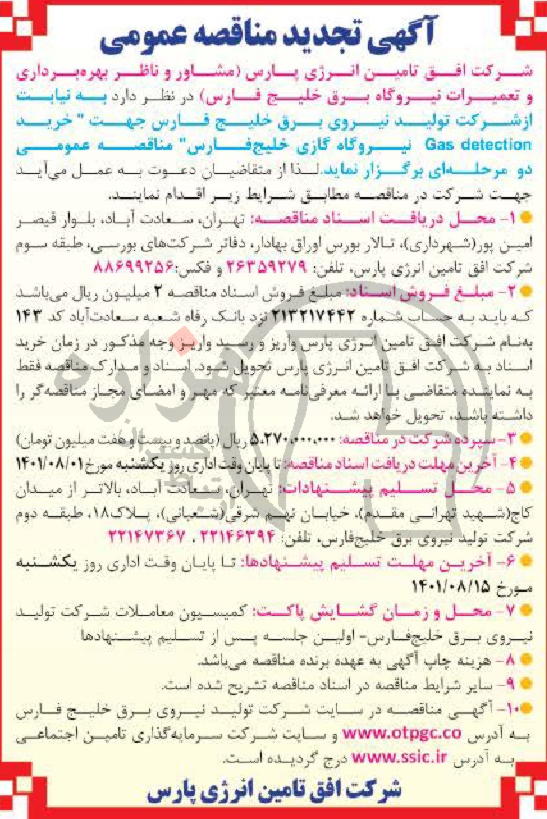 آگهی تجدید مناقصه عمومی
شرکت افق تامین انرژی پارس (مشاور و ناظر بهره‌برداری
و تعمیرات نیروگاه برق خلیج فارس) در نظر دارد به نیابت
ازشرکت تولید نیروی برق خلیج فارس جهت " خرید
Gas detection نیروگاه گازی خلیج‌فارس" مناقصه عمومی
دو مرحله‌ای برگزار نماید. لذا از متقاضیان دعوت به عمل می‌آید
جهت شرکت در مناقصه مطابق شرایط زیر اقدام نمایند.
۱- محل دریافت اسناد مناقصه: تهران، سعادت آباد، بلوار قیصر
امین پور(شهرداری)، تالار بورس اوراق بهادار، دفاتر شرکت‌های بورسی، طبقه سوم
شرکت افق تامین انرژی پارس، تلفن: ۲۶۳۵۹۲۷۹ و فکس:۸۸۶۹۹۲۵۶
۲- مبلغ فروش اسناد: مبلغ فروش اسناد مناقصه ۲ میلیون ریال می‌باشد
که باید به حساب شماره ۲۱۳۲۱۷۴۴۲ نزد بانک رفاه شعبه سعادت‌آباد کد ۱۴۳
به‌نام شرکت افق تامین انرژی پارس واریز و رسید واریز وجه مذکور در زمان خرید
اسناد به شرکت افق تامین انرژی پارس تحویل شود. اسناد و مدارک مناقصه فقط
به نماینده متقاضی با ارائه معرفی‌نامه معتبر که مهر و امضای مجاز مناقصه‌گر را
داشته باشد، تحویل خواهد شد.
۳- سپرده شرکت در مناقصه: ۵،۲۷۰،۰۰۰،۰۰۰ ریال (پانصد و بیست و هفت میلیون تومان)
۴- آخرین مهلت دریافت اسناد مناقصه: تا پایان وقت اداری روز یکشنبه مورخ ۱۴۰۱/۰۸/۰۱
۵- محل تسلیم پیشنهادات: تهران، سعادت آباد، بالاتر از میدان
کاج(شهید تهرانی مقدم)، خیابان نهم شرقی(شعبانی)، پلاک۱۸، طبقه دوم
شرکت تولید نیروی برق خلیج‌فارس، تلفن: ۲۲۱۴۶۳۹۴ ، ۲۲۱۴۷۳۶۷
۶- آخرین مهلت تسلیم پیشنهادها: تا پایان وقت اداری روز یکشنبه
مورخ ۱۴۰۱/۰۸/۱۵
۷- محل و زمان گشایش پاکت: کمیسیون معاملات شرکت تولید
نیروی برق خلیج‌فارس- اولین جلسه پس از تسلیم پیشنهادها
۸- هزینه چاپ آگهی به عهده برنده مناقصه می‌باشد.
۹- سایر شرایط مناقصه در اسناد مناقصه تشریح شده است.
۱۰- آگهی مناقصه در سایت شرکت تولید نیروی برق خلیج فارس
به آدرس www.otpgc.co و سایت شرکت سرمایه‌گذاری تامین اجتماعی
به آدرس www.ssic.ir درج گردیده است.
شرکت افق تامین انرژی پارس